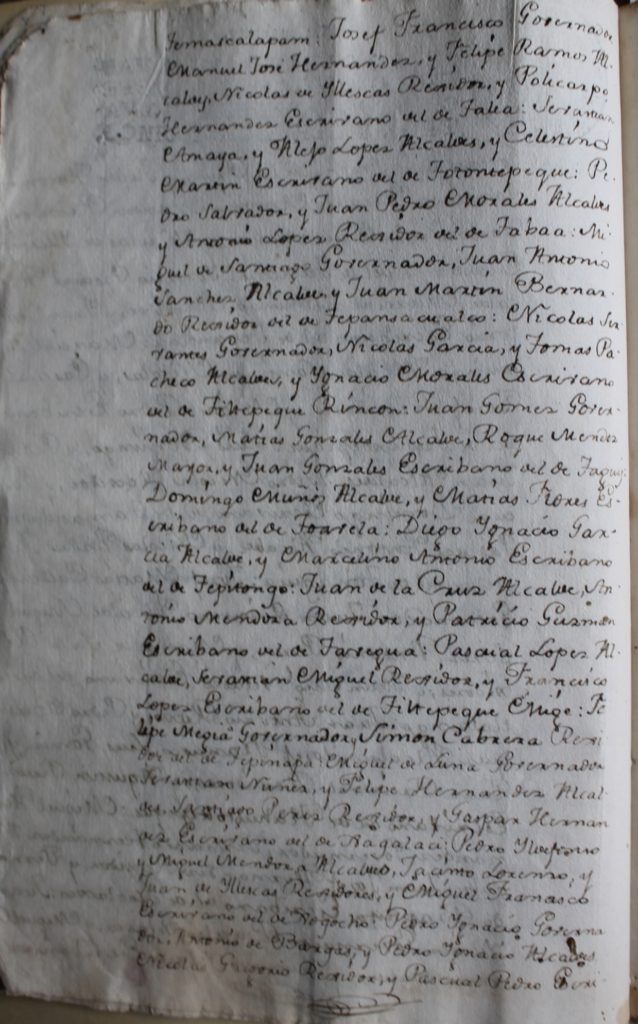 Temascalapam: Josef Francisco Governador
Manuel José Hernandez, y Felipe Ramos Al-
caldes, Nicolas de Yllescas Rexidor, y Policarpo
Hernandez Escrivano del de Talea: Seraman
Amaya, y Alejo Lopez Alcaldes, y Celestino
Martin Escrivano del de Totontepeque: Pe-
dro Salvador, y Juan Pedro Morales Alcaldes
y Antonio Lopez Rexidor del de Tabaa: Mi-
guel de Santiago Governador, Juan Antonio
Sanchez Alcalde, y Juan Martin Bernar-
do Rexidor del de Tepansacualco: Nicolas Ser-
rantes Governador, Nicolas Garcia, y Tomas Pa-
checo Alcaldes, y Ygnacio Morales Escrivano
del de Tiltepeque Rincon: Juan Gomez Gover-
nador, Matias Gonzales Alcalde, Roque Mendez
Mayor, y Juan Gonzales Escribano del de Yagui:
Domingo Muñoz Alcalde, y Matias Flores Es-
cribano del de Joarela: Diego Ygnacio Gar-
cia Alcalde, y Marcelino Antonio Escribano
del de Tepitongo: Juan de la Cruz Alcalde, An-
tonio Mendoza Rexidor, y Patricio Guzman
Escribano del de Taregua: Pasqual Lopez Al-
calde, Seraman Miguel Rexidor, y Francisco
Lopez Escribano del de Tiltepeque Mige: Fe-
lipe Megia Governador, y Simon Cabrera Rexi-
dor del de Tepinapa: Miguel de Luna Governador
Seraman Nuñez, y Felipe Hernandez Alcal-
des, Santiago Perez Rexidor, y Gaspar Hernan
dez Escrivano del de Yagalaci: Pedro Yldefonso
y Miguel Mendoza Alcaldes, Jacinto Lorenzo, y
Juan de Yllescas Rexidores, y Miguel Francisco
Escrivano del de Yogocho: Pedro Ygnacio Governa
dor, Antonio de Bargas, y Pedro Ygnacio Alcaldes
Nicolas Gregorio Rexidor, y Pasqual Pedro Escri-